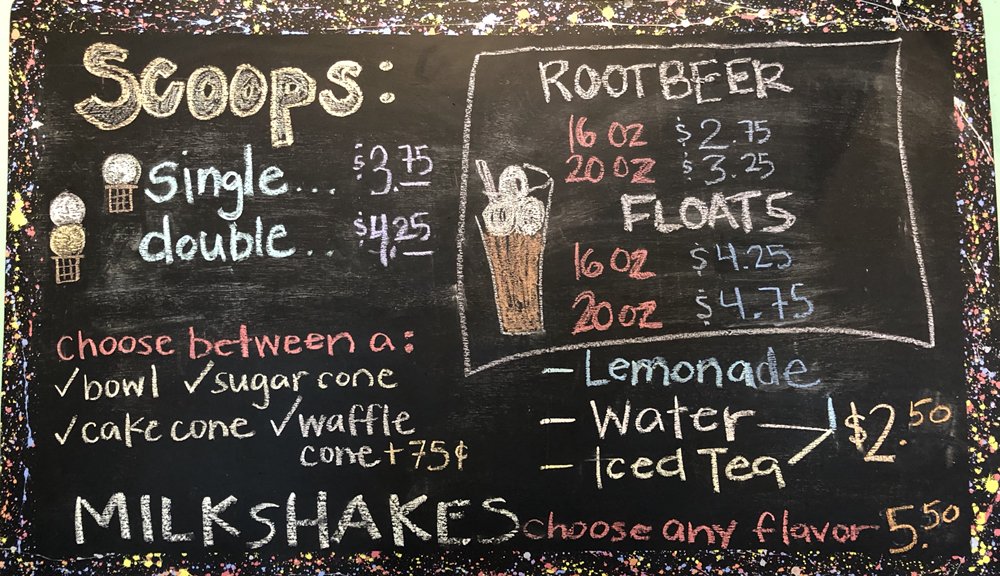 Scoops:
single... $3.75
double... $4.25
choose between a:
✓bowl ✓sugar cone
✓cake cone ✓waffle
cone+75¢
ROOTBEER
16 oz $2.75
20 oz $3.25
FLOATS
16 oz $4.25
20 oz $4.75
- Lemonade
- Water
- Iced Tea
$2.50
MILKSHAKES choose any flavor 5.50